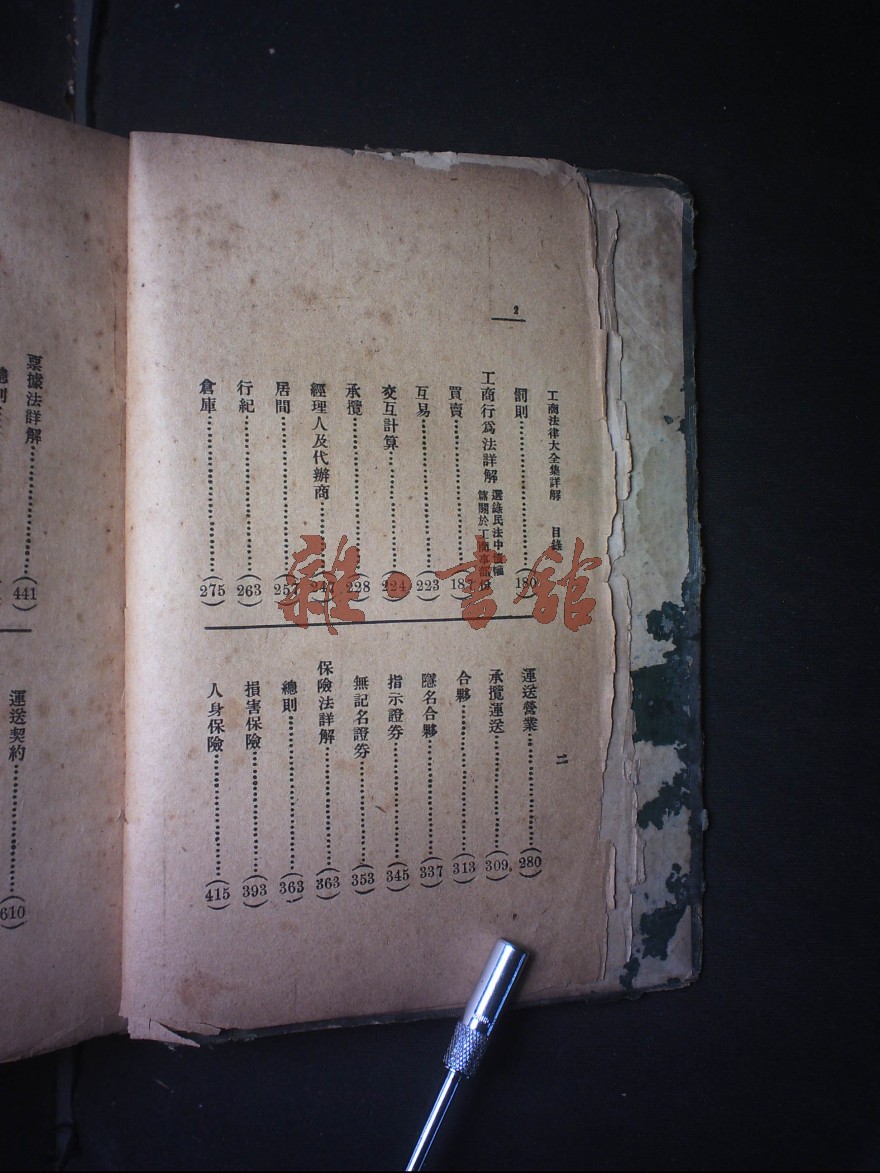 2
工商法律大全集詳解 目錄 二
罰則(180)
工商行爲法詳解
選錄民法中
篇關於工商
買賣
互易(223)
交互計算(224)
承攬(228)
經理人及代辦商(247)
居間(257)
行紀(263)
倉庫(275)
運送營業(280)
承攬運送(309)
合夥(313)
隱名合夥(337)
指示證券(345)
無記名證券(353)
保險法詳解(363)
總則(363)
損害保險(393)
人身保險(415)
票據法詳解(441)
運送契約
610
雜·書館